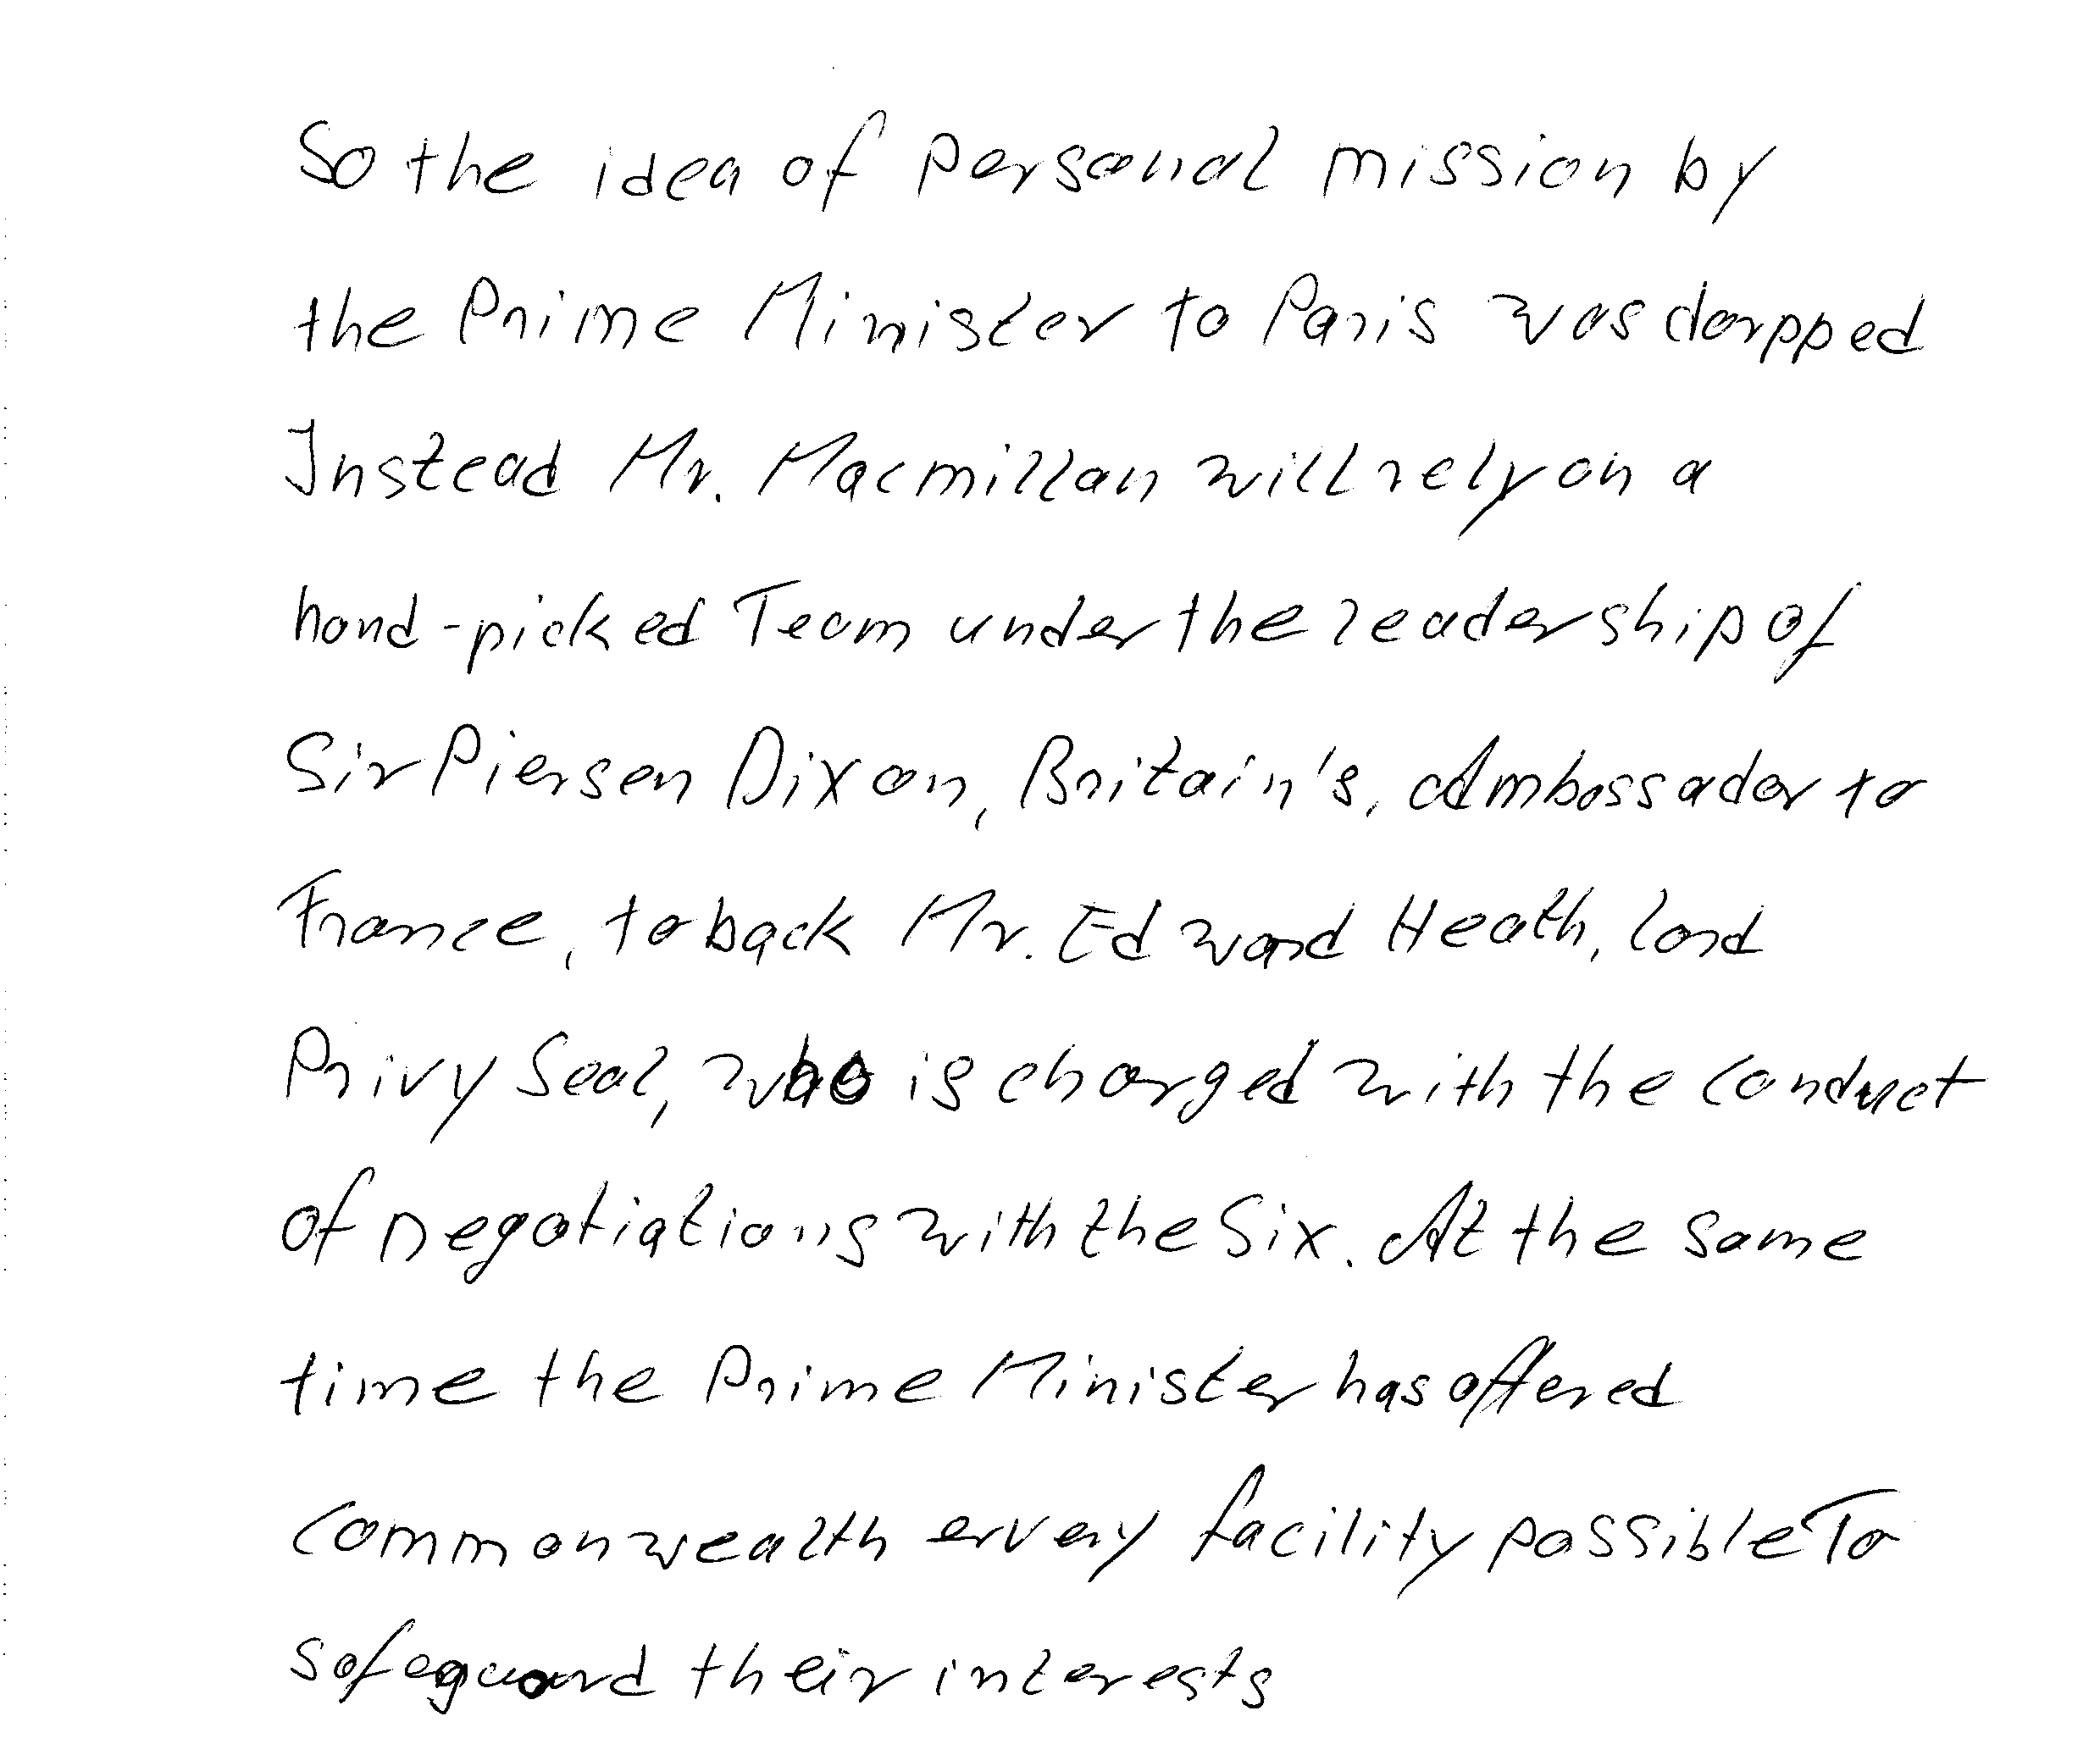 So the idea of personal mission by
the Prime Minister to Paris was dorpped
Instead Mr. Macmillan will rely on a
hand-picked Team under the leadership of
Sir Piersen Dixon, Britain's, Ambassador to
France, to back Mr. Edward Heath, lord
Privy Seal, who is charged with the conduct
of negotiations with the Six. At the same
time the Prime Minister has offered
Commonwealth ervery facility possible To
safeguard their interests